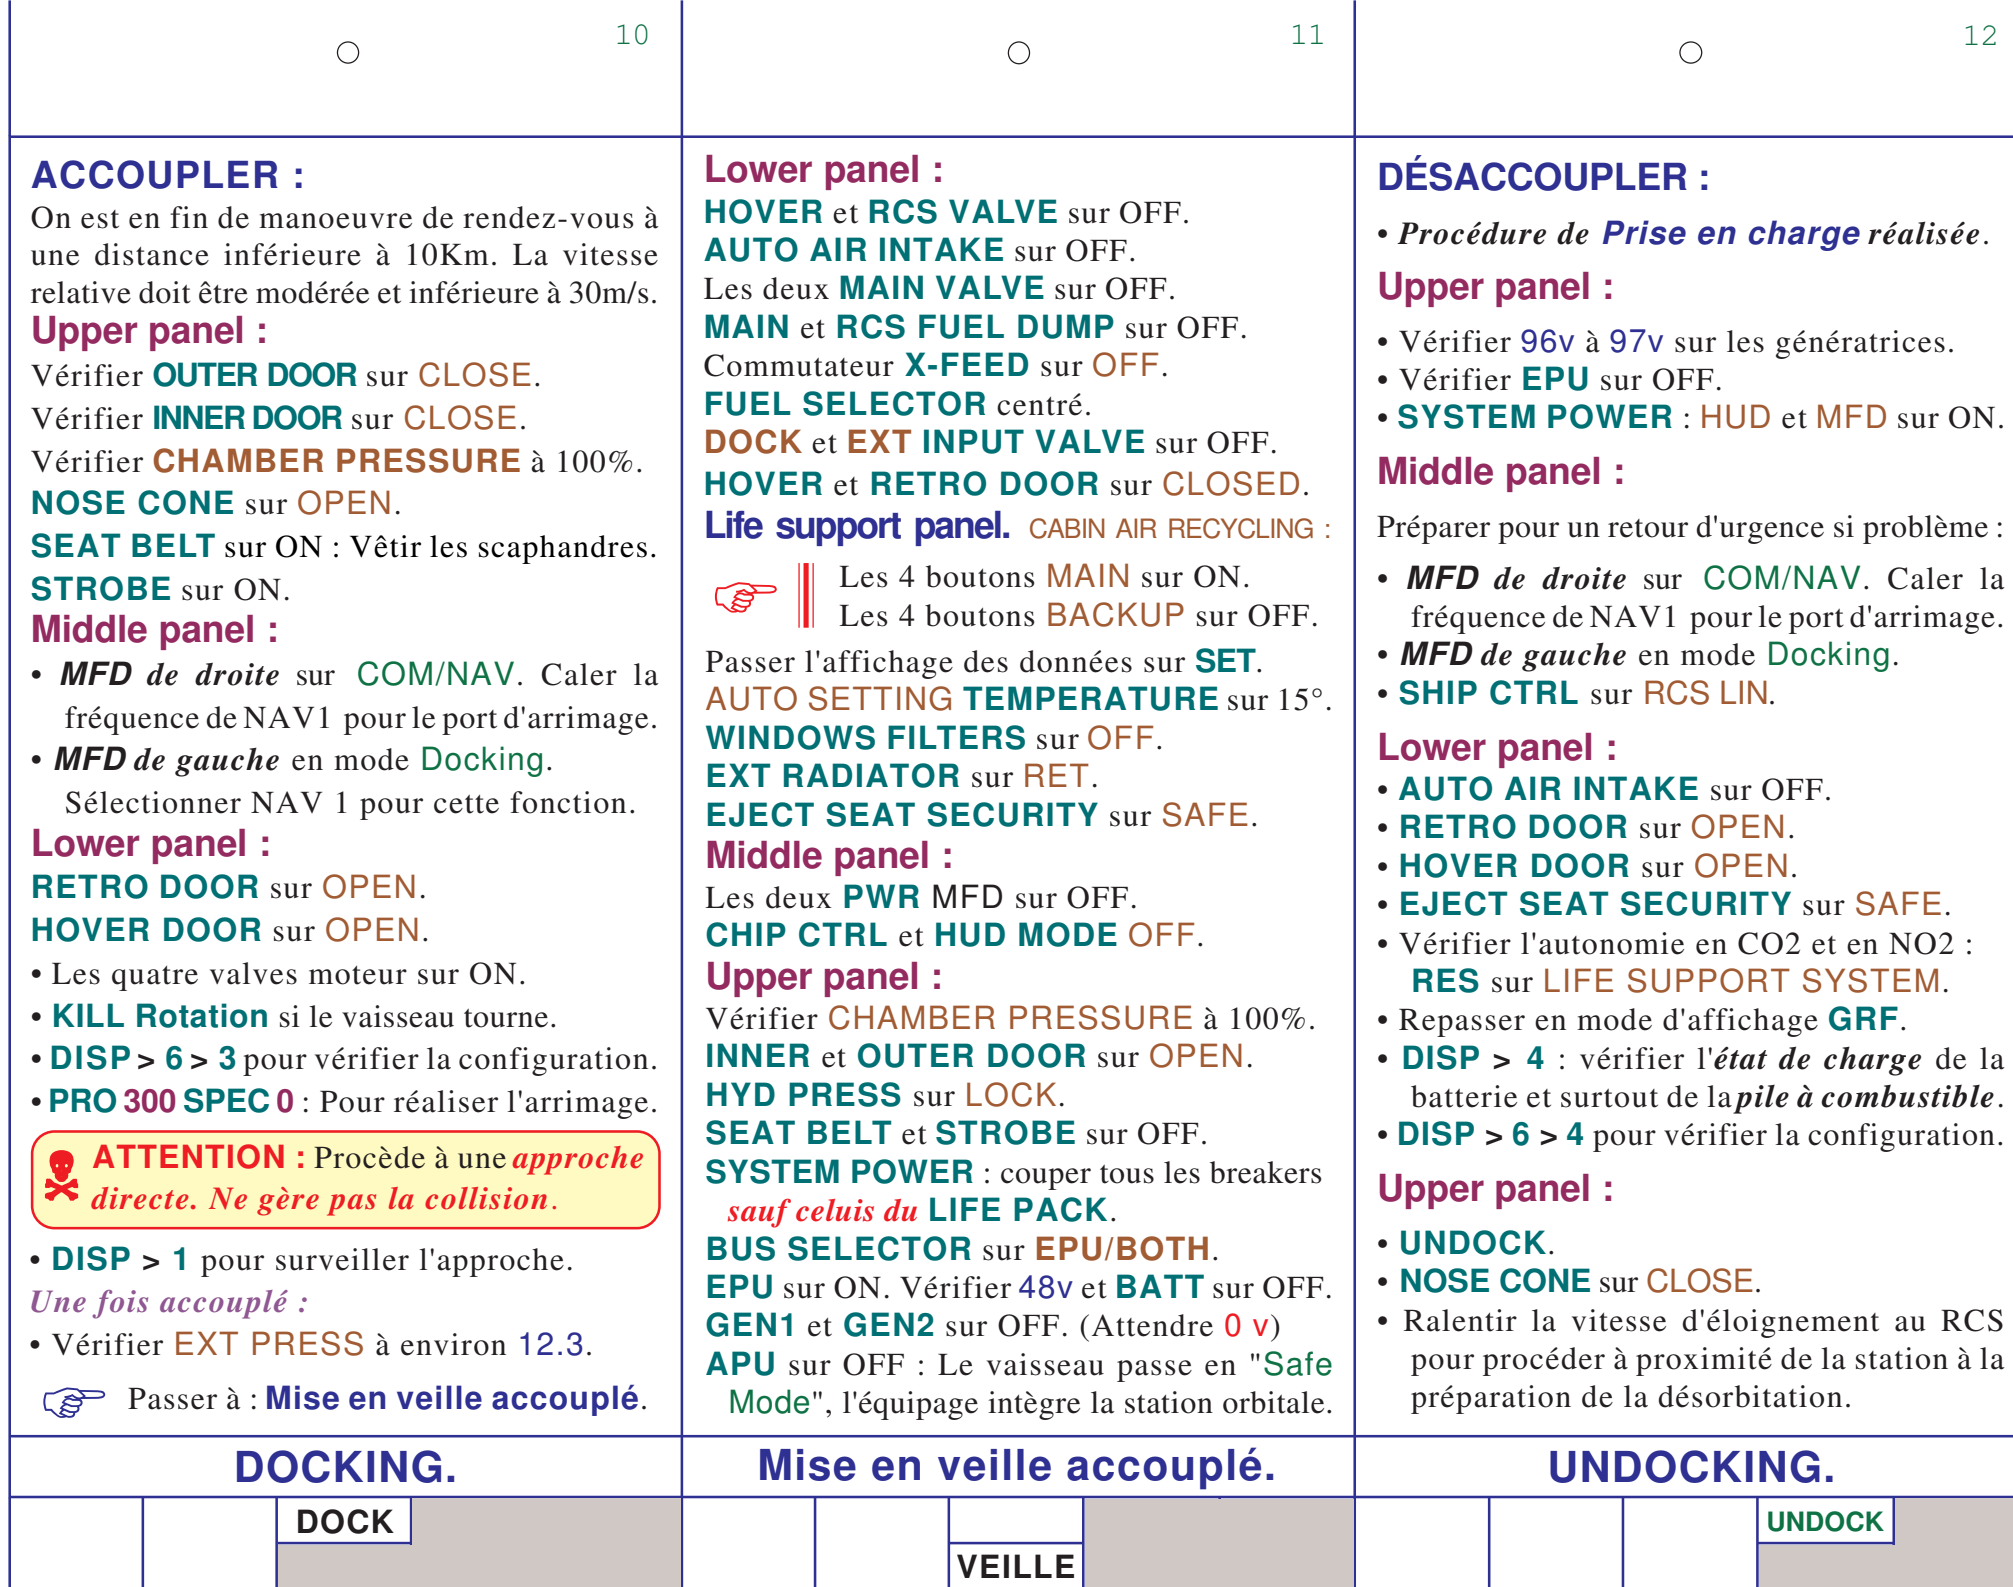 10
ACCOUPLER :
On est en fin de manoeuvre de rendez-vous à
une distance inférieure à 10Km. La vitesse
relative doit être modérée et inférieure à 30m/s.
Upper panel :
Vérifier OUTER DOOR sur CLOSE.
Vérifier INNER DOOR sur CLOSE.
Vérifier CHAMBER PRESSURE à 100%.
NOSE CONE sur OPEN.
SEAT BELT sur ON : Vêtir les scaphandres.
STROBE sur ON.
Middle panel :
• MFD de droite sur COM/NAV. Caler la
fréquence de NAV1 pour le port d'arrimage.
• MFD de gauche en mode Docking.
Sélectionner NAV 1 pour cette fonction.
Lower panel :
RETRO DOOR sur OPEN.
HOVER DOOR sur OPEN.
• Les quatre valves moteur sur ON.
• KILL Rotation si le vaisseau tourne.
• DISP > 6 > 3 pour vérifier la configuration.
• PRO 300 SPEC 0 : Pour réaliser l'arrimage.
ATTENTION : Procède à une approche
directe. Ne gère pas la collision.
• DISP > 1 pour surveiller l'approche.
Une fois accouplé :
• Vérifier EXT PRESS à environ 12.3.
Passer à : Mise en veille accouplé.
DOCKING.
DOCK
11
Lower panel :
HOVER et RCS VALVE sur OFF.
AUTO AIR INTAKE sur OFF.
Les deux MAIN VALVE sur OFF.
MAIN et RCS FUEL DUMP sur OFF.
Commutateur X-FEED sur OFF.
FUEL SELECTOR centré.
DOCK et EXT INPUT VALVE sur OFF.
HOVER et RETRO DOOR sur CLOSED.
Life support panel. CABIN AIR RECYCLING :
Les 4 boutons MAIN sur ON.
Les 4 boutons BACKUP sur OFF.
Passer l'affichage des données sur SET.
AUTO SETTING TEMPERATURE sur 15°.
WINDOWS FILTERS sur OFF.
EXT RADIATOR sur RET.
EJECT SEAT SECURITY sur SAFE.
Middle panel :
Les deux PWR MFD sur OFF.
CHIP CTRL et HUD MODE OFF.
Upper panel :
Vérifier CHAMBER PRESSURE à 100%.
INNER et OUTER DOOR sur OPEN.
HYD PRESS sur LOCK.
SEAT BELT et STROBE sur OFF.
SYSTEM POWER : couper tous les breakers
sauf celuis du LIFE PACK.
BUS SELECTOR sur EPU/BOTH.
EPU sur ON. Vérifier 48v et BATT sur OFF.
GEN1 et GEN2 sur OFF. (Attendre 0 v)
APU sur OFF : Le vaisseau passe en "Safe
Mode", l'équipage intègre la station orbitale.
Mise en veille accouplé.
VEILLE
12
DÉSACCOUPLER :
• Procédure de Prise en charge réalisée.
Upper panel :
• Vérifier 96v à 97v sur les génératrices.
• Vérifier EPU sur OFF.
• SYSTEM POWER : HUD et MFD sur ON.
Middle panel :
Préparer pour un retour d'urgence si problème :
• MFD de droite sur COM/NAV. Caler la
fréquence de NAV1 pour le port d'arrimage.
• MFD de gauche en mode Docking.
• SHIP CTRL sur RCS LIN.
Lower panel :
• AUTO AIR INTAKE sur OFF.
• RETRO DOOR sur OPEN.
• HOVER DOOR sur OPEN.
• EJECT SEAT SECURITY sur SAFE.
• Vérifier l'autonomie en CO2 et en NO2 :
RES sur LIFE SUPPORT SYSTEM.
• Repasser en mode d'affichage GRF.
• DISP > 4 : vérifier l'état de charge de la
batterie et surtout de la pile à combustible.
• DISP > 6 > 4 pour vérifier la configuration.
Upper panel :
• UNDOCK.
• NOSE CONE sur CLOSE.
• Ralentir la vitesse d'éloignement au RCS
pour procéder à proximité de la station à la
préparation de la désorbitation.
UNDOCKING.
UNDOCK